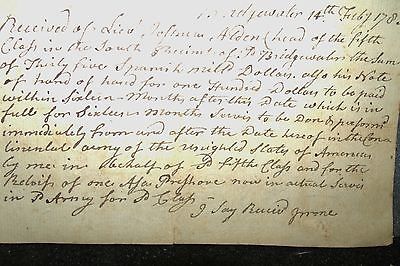 Bridgewater 14th Feby 178
Received of Lieut Joshua Alden (head of the fifth
Class in the South Precinct of sd Bridgewater the Sum
of Thirty five Spanish mill'd Dollars also his Note
of hand of hand for one Hundred Dollars to be paid
within Sixteen Months after this Date which is in
full for Sixteen Months Servis to be Done & preform'd
immediately from and after the Date hereof in the Con-
tinental army of the Uneighted States of America
by me in Behalf of sd fifth Class and for the
Releiss of one Asa now in actual Servis
in sd Army for sd Class
I Say Receivd prme